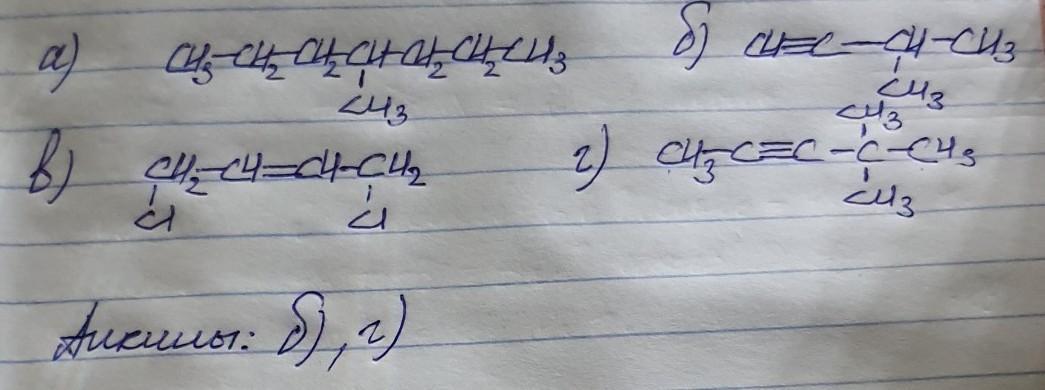 а) CH₃-CH₂-CH₂-CH-CH₂-CH₂-CH₃
CH₃
б) CH≡C-CH-CH₃
CH₃
в) CH₂-CH=CH-CH₂
Cl Cl
CH₃
г) CH₃-C≡C-C-CH₃
CH₃
Алкины: б), г)